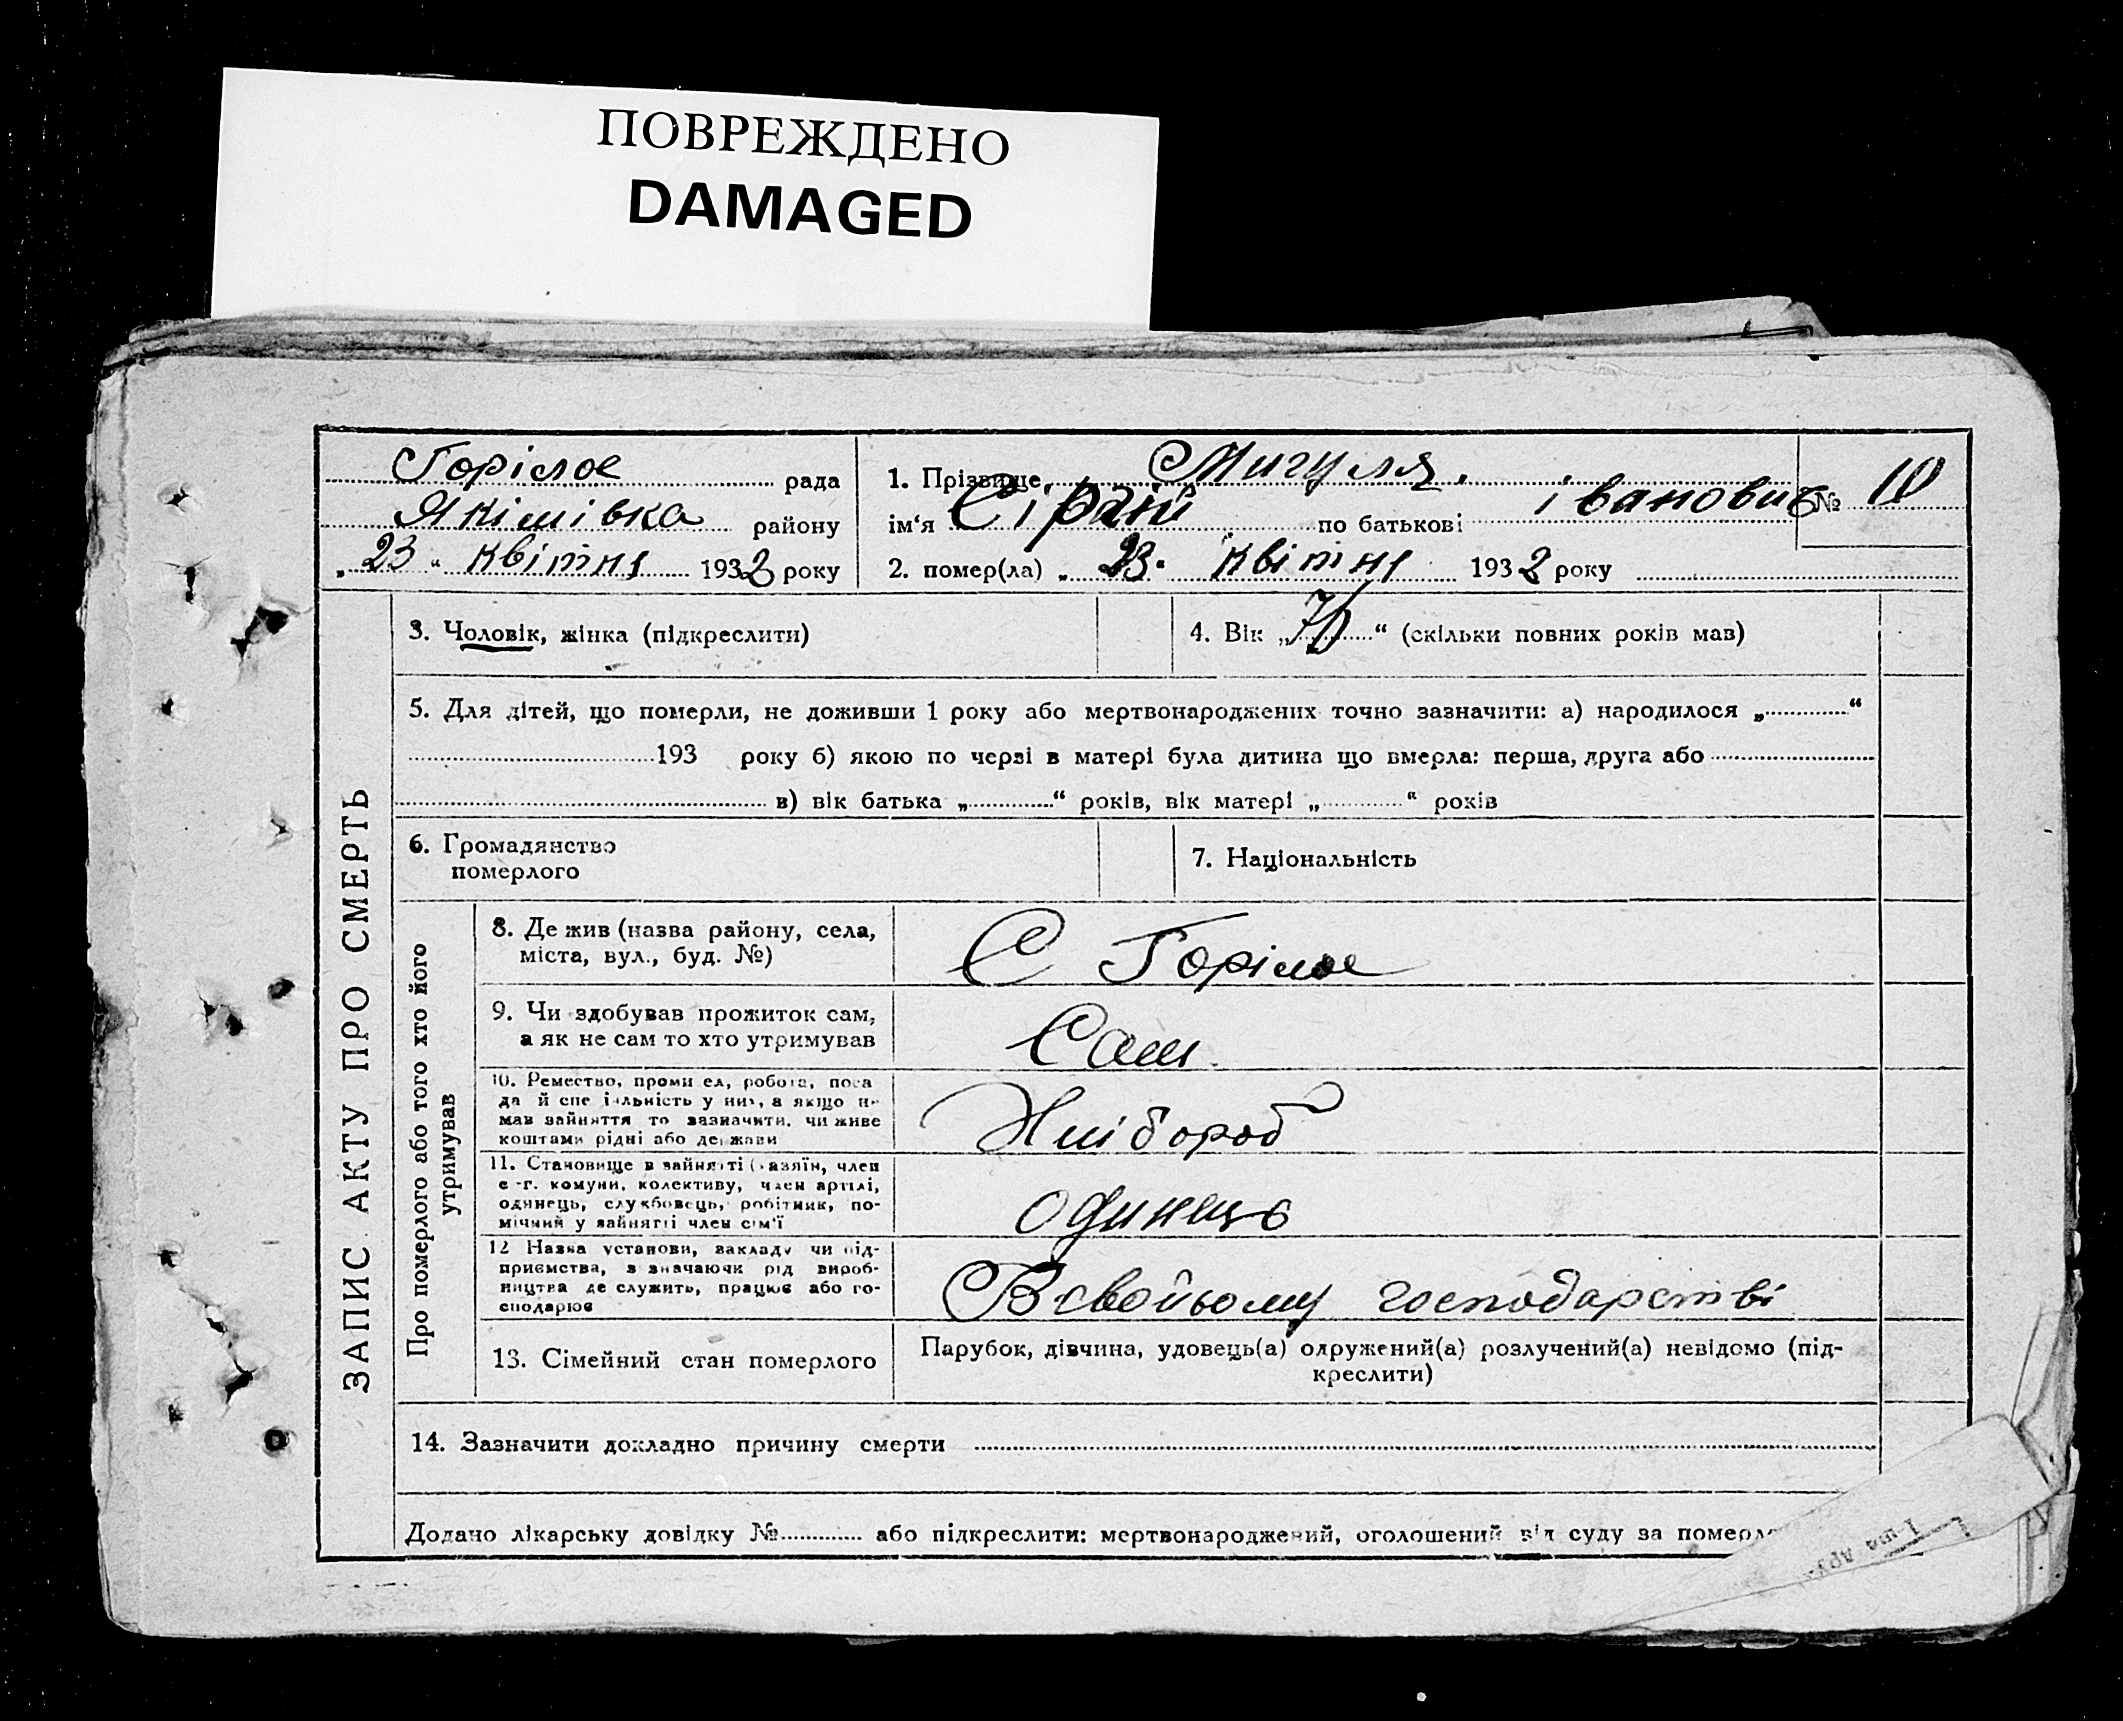 ПОВРЕЖДЕНО
DAMAGED
Горілое рада
Якімівка району
„ 23 “ квітня 1932 року
1. Прізвище Мигуля.
ім‘я по батькові івановиč
№ 10
2. помер(ла) „ 23. квітня 1932 року
ЗАПИС АКТУ ПРО СМЕРТЬ
3. Чоловік, жінка (підкреслити)
4. Вік „ 70 “ (скільки повних років мав)
5. Для дітей, що померли, не доживши 1 року або мертвонароджених точно зазначити: а) народилося „ “
193 року б) якою по черзі в матері була дитина що вмерла: перша, друга або
в) вік батька „ “ років, вік матері „ “ років
6. Громадянство
померлого
7. Національність
Про померлого або того хто його
утримував
8. Де жив (назва району, села,
міста, вул., буд. №)
С Горілое
9. Чи здобував прожиток сам,
а як не сам то хто утримував
Сам
10. Ремество, проми ел, робота, поса
да й спе іальність у них, а якщо н-
мав зайняття то зазначити, чи живе
коштами рідні або держави
Хлібороб
11. Становище в зайнятті (хазяїн, член
с-г. комуни, колективу, член артілі,
одинець, службовець, робітник, по-
мічний у зайнятті член сім'ї
одинець
12 Назва установи, закладу чи під-
приємства, з значаючи рід вироб-
ництва де служить, працює або го-
сподарює
В свойому господарстві
13. Сімейний стан померлого
Парубок, дівчина, удовець(а) одружений(а) розлучений(а) невідомо (під-
креслити)
14. Зазначити докладно причину смерти
Додано лікарську довідку № або підкреслити: мертвонароджений, оголошений від суду за померл